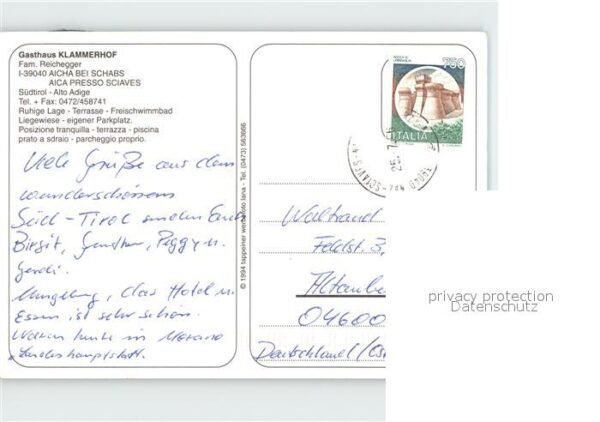 Gasthaus KLAMMERHOF
Fam. Reichegger
I-39040 AICHA BEI SCHABS
AICA PRESSO SCIAVES
Südtirol - Alto Adige
Tel. + Fax: 0472/458741
Ruhige Lage - Terrasse - Freischwimmbad
Liegewiese - eigener Parkplatz.
Posizione tranquilla - terrazza - piscina
prato a sdraio - parcheggio proprio.
Viele Grüße aus dem
wunderschönen
Süd-Tirol senden Euch
Birgit, Peggy u.
Gerdi.
Umgebung, das Hotel u.
Essen ist sehr schön.
Waren heute in Merano
Landeshauptstadt.
© 1994 tappeiner werbefoto lana - Tel. (0473) 563666
750
ITALIA
Waltraud
Feldst. 3,
Altenbu
04600
Deutschland
privacy protection
Datenschutz